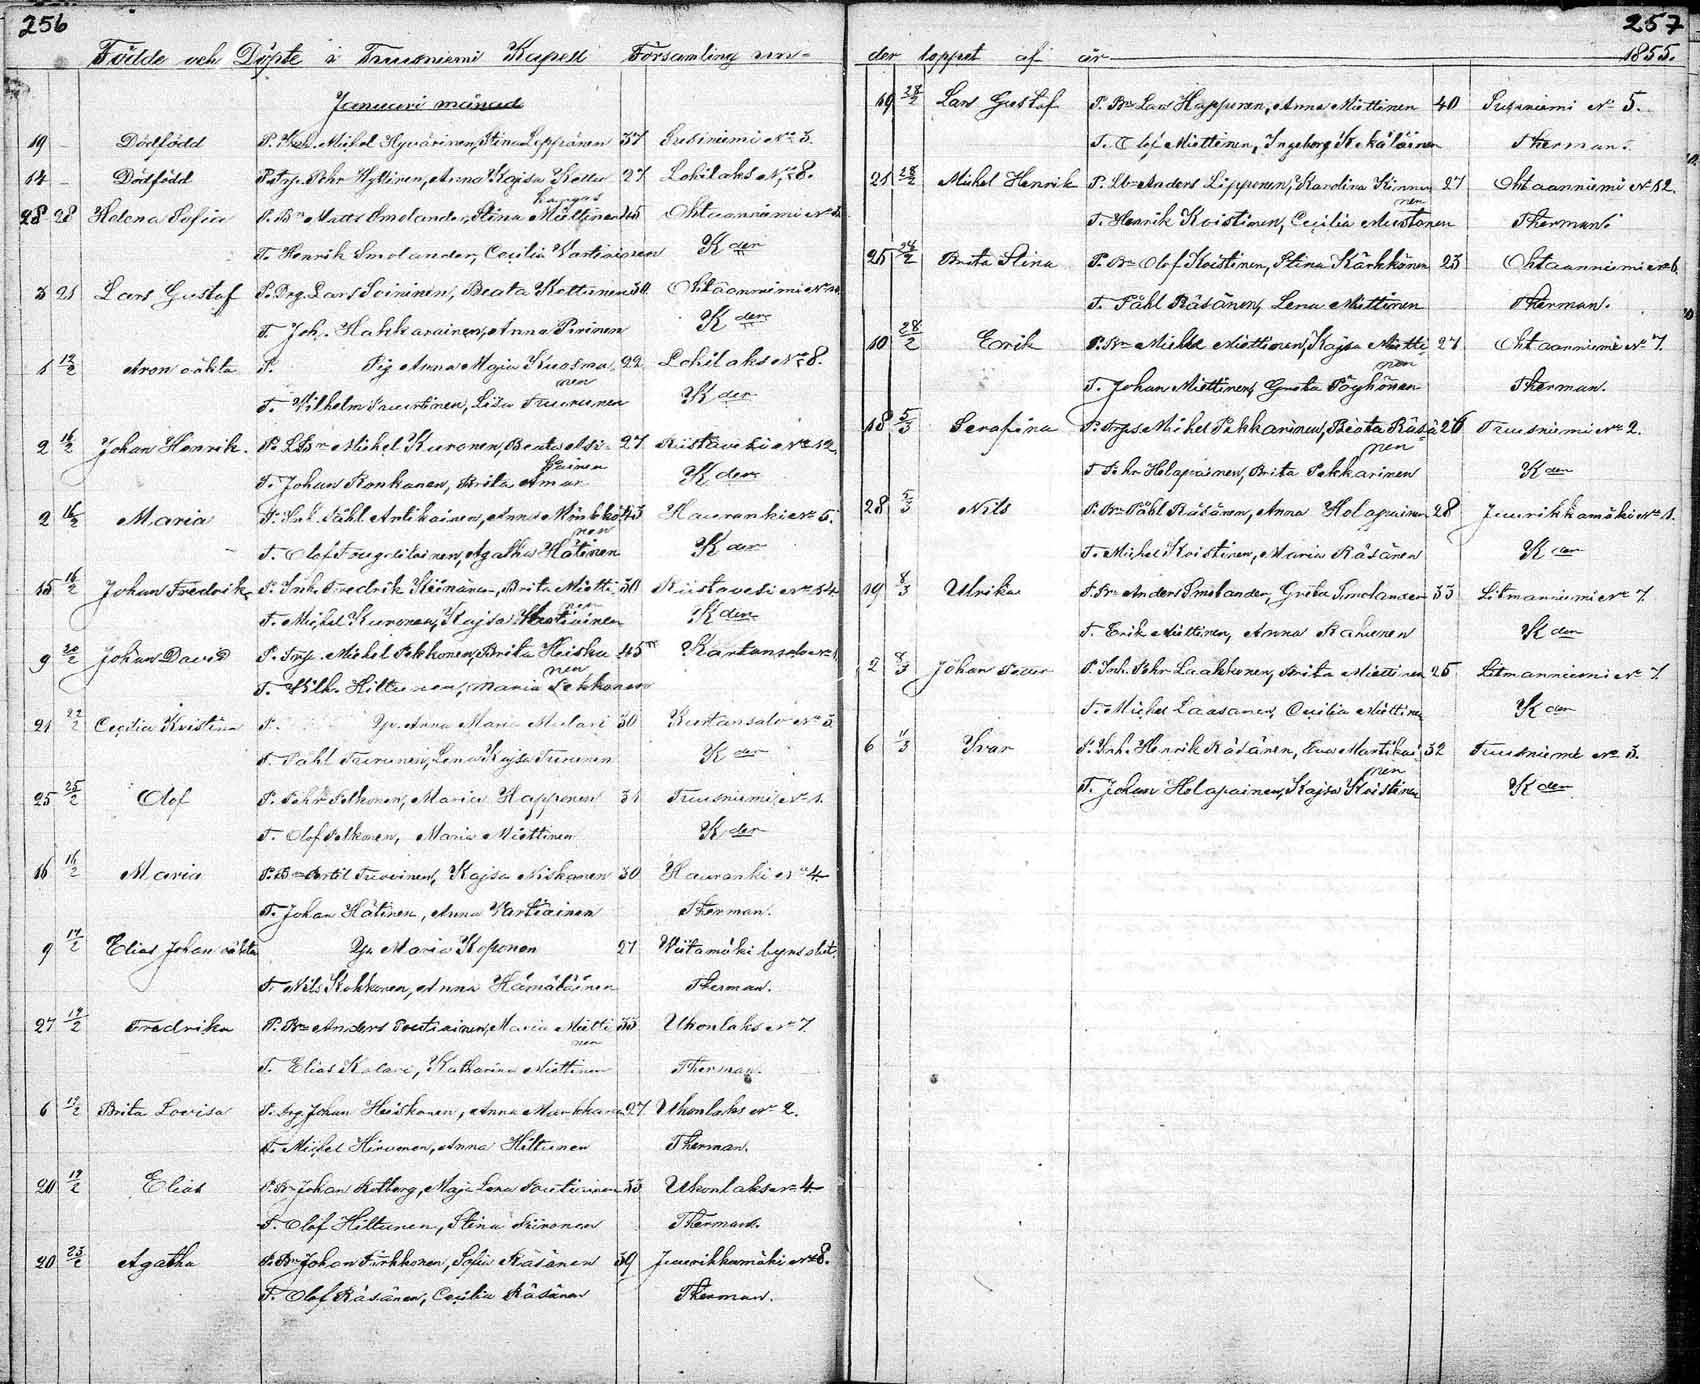 256
Födde och Döpte i Tuusniemi Kapell Församling un=
Januari månad
19 – Dödfödd P. Michel Hyvärinen, Stina Leppänen 37 Susiniemi No 3.
14 – Dödfödd P. Pehr Hyttinen, Anna Kajsa Kettu 27 Lohilaks No 8.
28 28 Helena Sofia P. Bn Matts Smolander, Stina Miettinen 45 Ohtaanniemi No
T. Henrik Smolander, Cecilia Vartiainen K der
3 21 Lars Gustaf P. Drg. Lars Soininen, Beata Kettunen 30 Ohtaanniemi No
T. Joh. Hakkarainen, Anna Pirinen K der
1 12/2 Aron oäkta P. Pig Anna Maja Kuosma 22 Lohilaks No 8.
nen
T. Vilhelm Lisa Turunen K der
2 16/2 Johan Henrik. P. Michel Kuronen, Beata 27 Riistavesi No 12
T. Johan Ronkanen, Brita K der
2 16/2 Maria P. Inh. Påhl Antikainen, Anna Mönkkö 43 Hauranki No 5.
nen
T. Olof Agatha Hätinen K der
15 16/2 Johan Fredrik P. Inh. Fredrik Keinänen, Brita Mietti 30 Riistavesi No 14
nen
T. Michel Kuronen, Kajsa K der
9 20/2 Johan David P. Michel Pekkonen, Brita Heiska 45 Kartansalo No 1
nen
T. Vilh. Hiltunen, Maria Pekkonen
21 22/2 Cecilia Kristina P. Anna Maria 30 Kartansalo No 3
T. Påhl Turunen, Lena Kajsa Turunen K der
25 25/2 Olof P. Pehr Pelkonen, Maria Happonen 31 Tuusniemi No 1.
T. Olof Pelkonen, Maria Miettinen K der
16 16/2 Maria P. Bn Bertil Tuovinen, Kajsa Niskanen 30 Hauranki No 4
T. Johan Hätinen, Anna Vartiainen Therman.
9 17/2 Elias Johan oäkta Maria Koponen 27 Viitamäki byns
T. Nils Kokkonen, Anna Hämäläinen Therman.
27 19/2 Fredrika P. Bn Anders Poutiainen, Maria Mietti 33 Ukonlaks No 7.
nen
T. Elias Kolari, Katharina Miettinen Therman.
6 19/2 Brita Lovisa P. Johan Heiskanen, Anna Markkanen 27 Ukonlaks No 2.
T. Michel Hirvonen, Anna Hiltunen Therman.
20 19/2 Elias P. Bn Johan Rotberg, Maja Lena Poutiainen 33 Ukonlaks No 4
T. Olof Hiltunen, Stina Piironen Therman.
20 23/2 Agatha P. Bn Johan Pärkkonen, Sofia Räsänen 39 Juurikkamäki No 8.
T. Olof Räsänen, Cecilia Räsänen Therman.
257
der loppet af år 1855.
19 28/2 Lars Gustaf P. Bn Lars Happonen, Anna Miettinen 40 Susiniemi No 5.
T. Olof Miettinen, Ingeborg Kekäläinen Therman.
21 28/2 Michel Henrik P. Anders Lipponen, Karolina Kinnu 27 Ohtaanniemi No 12.
nen
T. Henrik Koistinen, Cecilia Mustonen Therman.
25 28/2 Brita Stina P. Bn Olof Koistinen, Stina Kärkkänen 23 Ohtaanniemi No 6.
T. Påhl Räsänen, Lena Miettinen Therman.
10 28/2 Erik P. Bn Michel Miettinen, Kajsa Mietti 27 Ohtaanniemi No 7.
nen
T. Johan Miettinen, Greta Pöyhönen Therman.
18 5/3 Serafina P. Michel Pekkarinen, Beata Räsä 26 Tuusniemi No 2.
nen
T. Pehr Holapainen, Brita Pekkarinen K der
28 5/3 Nils P. Bn Påhl Räsänen, Anna Holapainen 28 Juurikkamäki No 1.
T. Michel Koistinen, Maria Räsänen K der
19 8/3 Ulrika P. Bn Anders Smolander, Greta Smolander 33 Litmanniemi No 7.
T. Erik Miettinen, Anna Rahunen K der
2 8/3 Johan Petter P. Inh. Pehr Laakkonen, Brita Miettinen 25 Litmanniemi No 7
T. Michel Laasanen, Cecilia Miettinen K der
6 11/3 Ivar P. Inh. Henrik Räsänen, Eva Martikai 32 Tuusniemi No 3.
nen
T. Johan Holapainen, Kajsa Koistinen K der